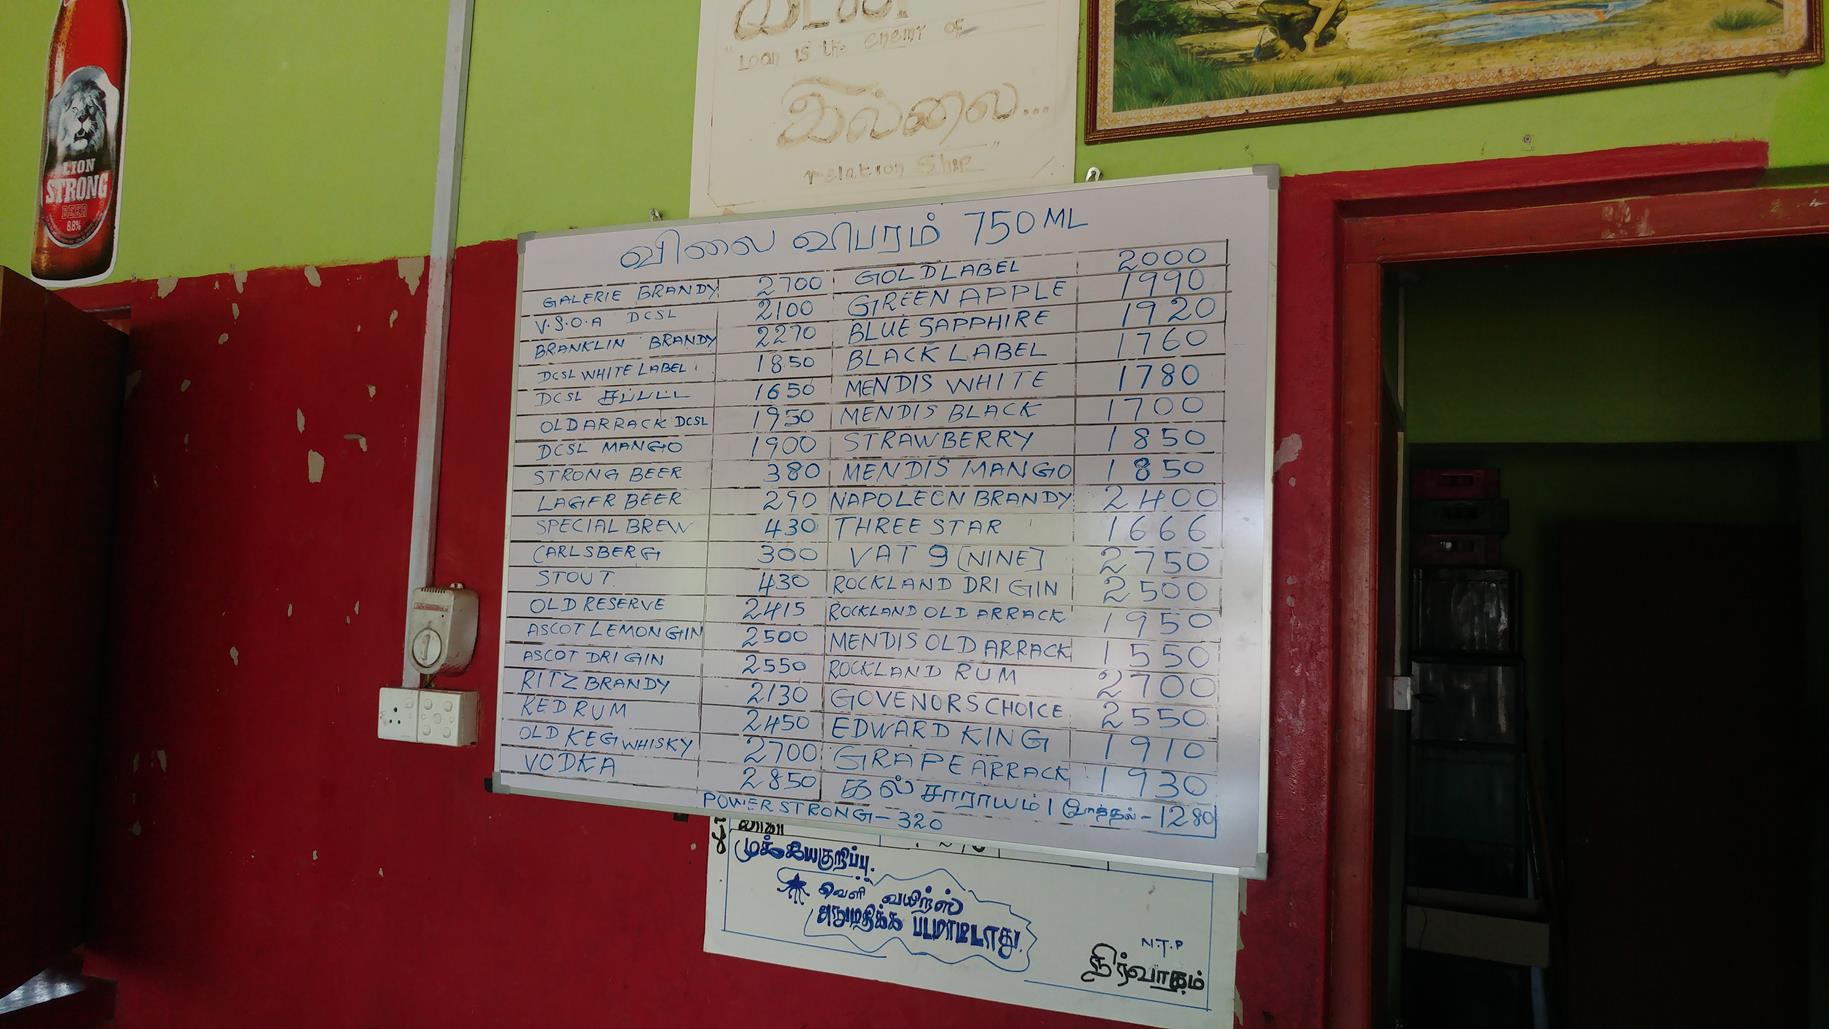 LION
STRONG
BEER
8.8%
கடன்
"Loan is the enemy of
இல்லை...
relation ship"
விலை விபரம் 750ML
GALERIE BRANDY 2700 GOLD LABEL 2000
V.S.O.A DCSL 2100 GREEN APPLE 1990
BRANKLIN BRANDY 2270 BLUE SAPPHIRE 1920
DCSL WHITE LABEL 1850 BLACK LABEL 1760
DCSL 1650 MENDIS WHITE 1780
OLD ARRACK DCSL 1950 MENDIS BLACK 1700
DCSL MANGO 1900 STRAWBERRY 1850
STRONG BEER 380 MENDIS MANGO 1850
LAGER BEER 290 NAPOLEON BRANDY 2400
SPECIAL BREW 430 THREE STAR 1666
CARLSBERG 300 VAT 9 [NINE] 2750
STOUT 430 ROCKLAND DRI GIN 2500
OLD RESERVE 2415 ROCKLAND OLD ARRACK 1950
ASCOT LEMON GIN 2500 MENDIS OLD ARRACK 1550
ASCOT DRI GIN 2550 ROCKLAND RUM 2700
RITZ BRANDY 2130 GOVENORS CHOICE 2550
KED RUM 2450 EDWARD KING 1910
OLD KEG WHISKY 2700 GRAPE ARRACK 1930
VODKA 2850 தல் சாராயம் 1 போத்தல் - 1280
POWER STRONG - 320
முக்கியகுறிப்பு.
வெளி வயிற்ஸ்
அநுமதிக்க படமாட்டாது!
N.T.P
நிர்வாகம்